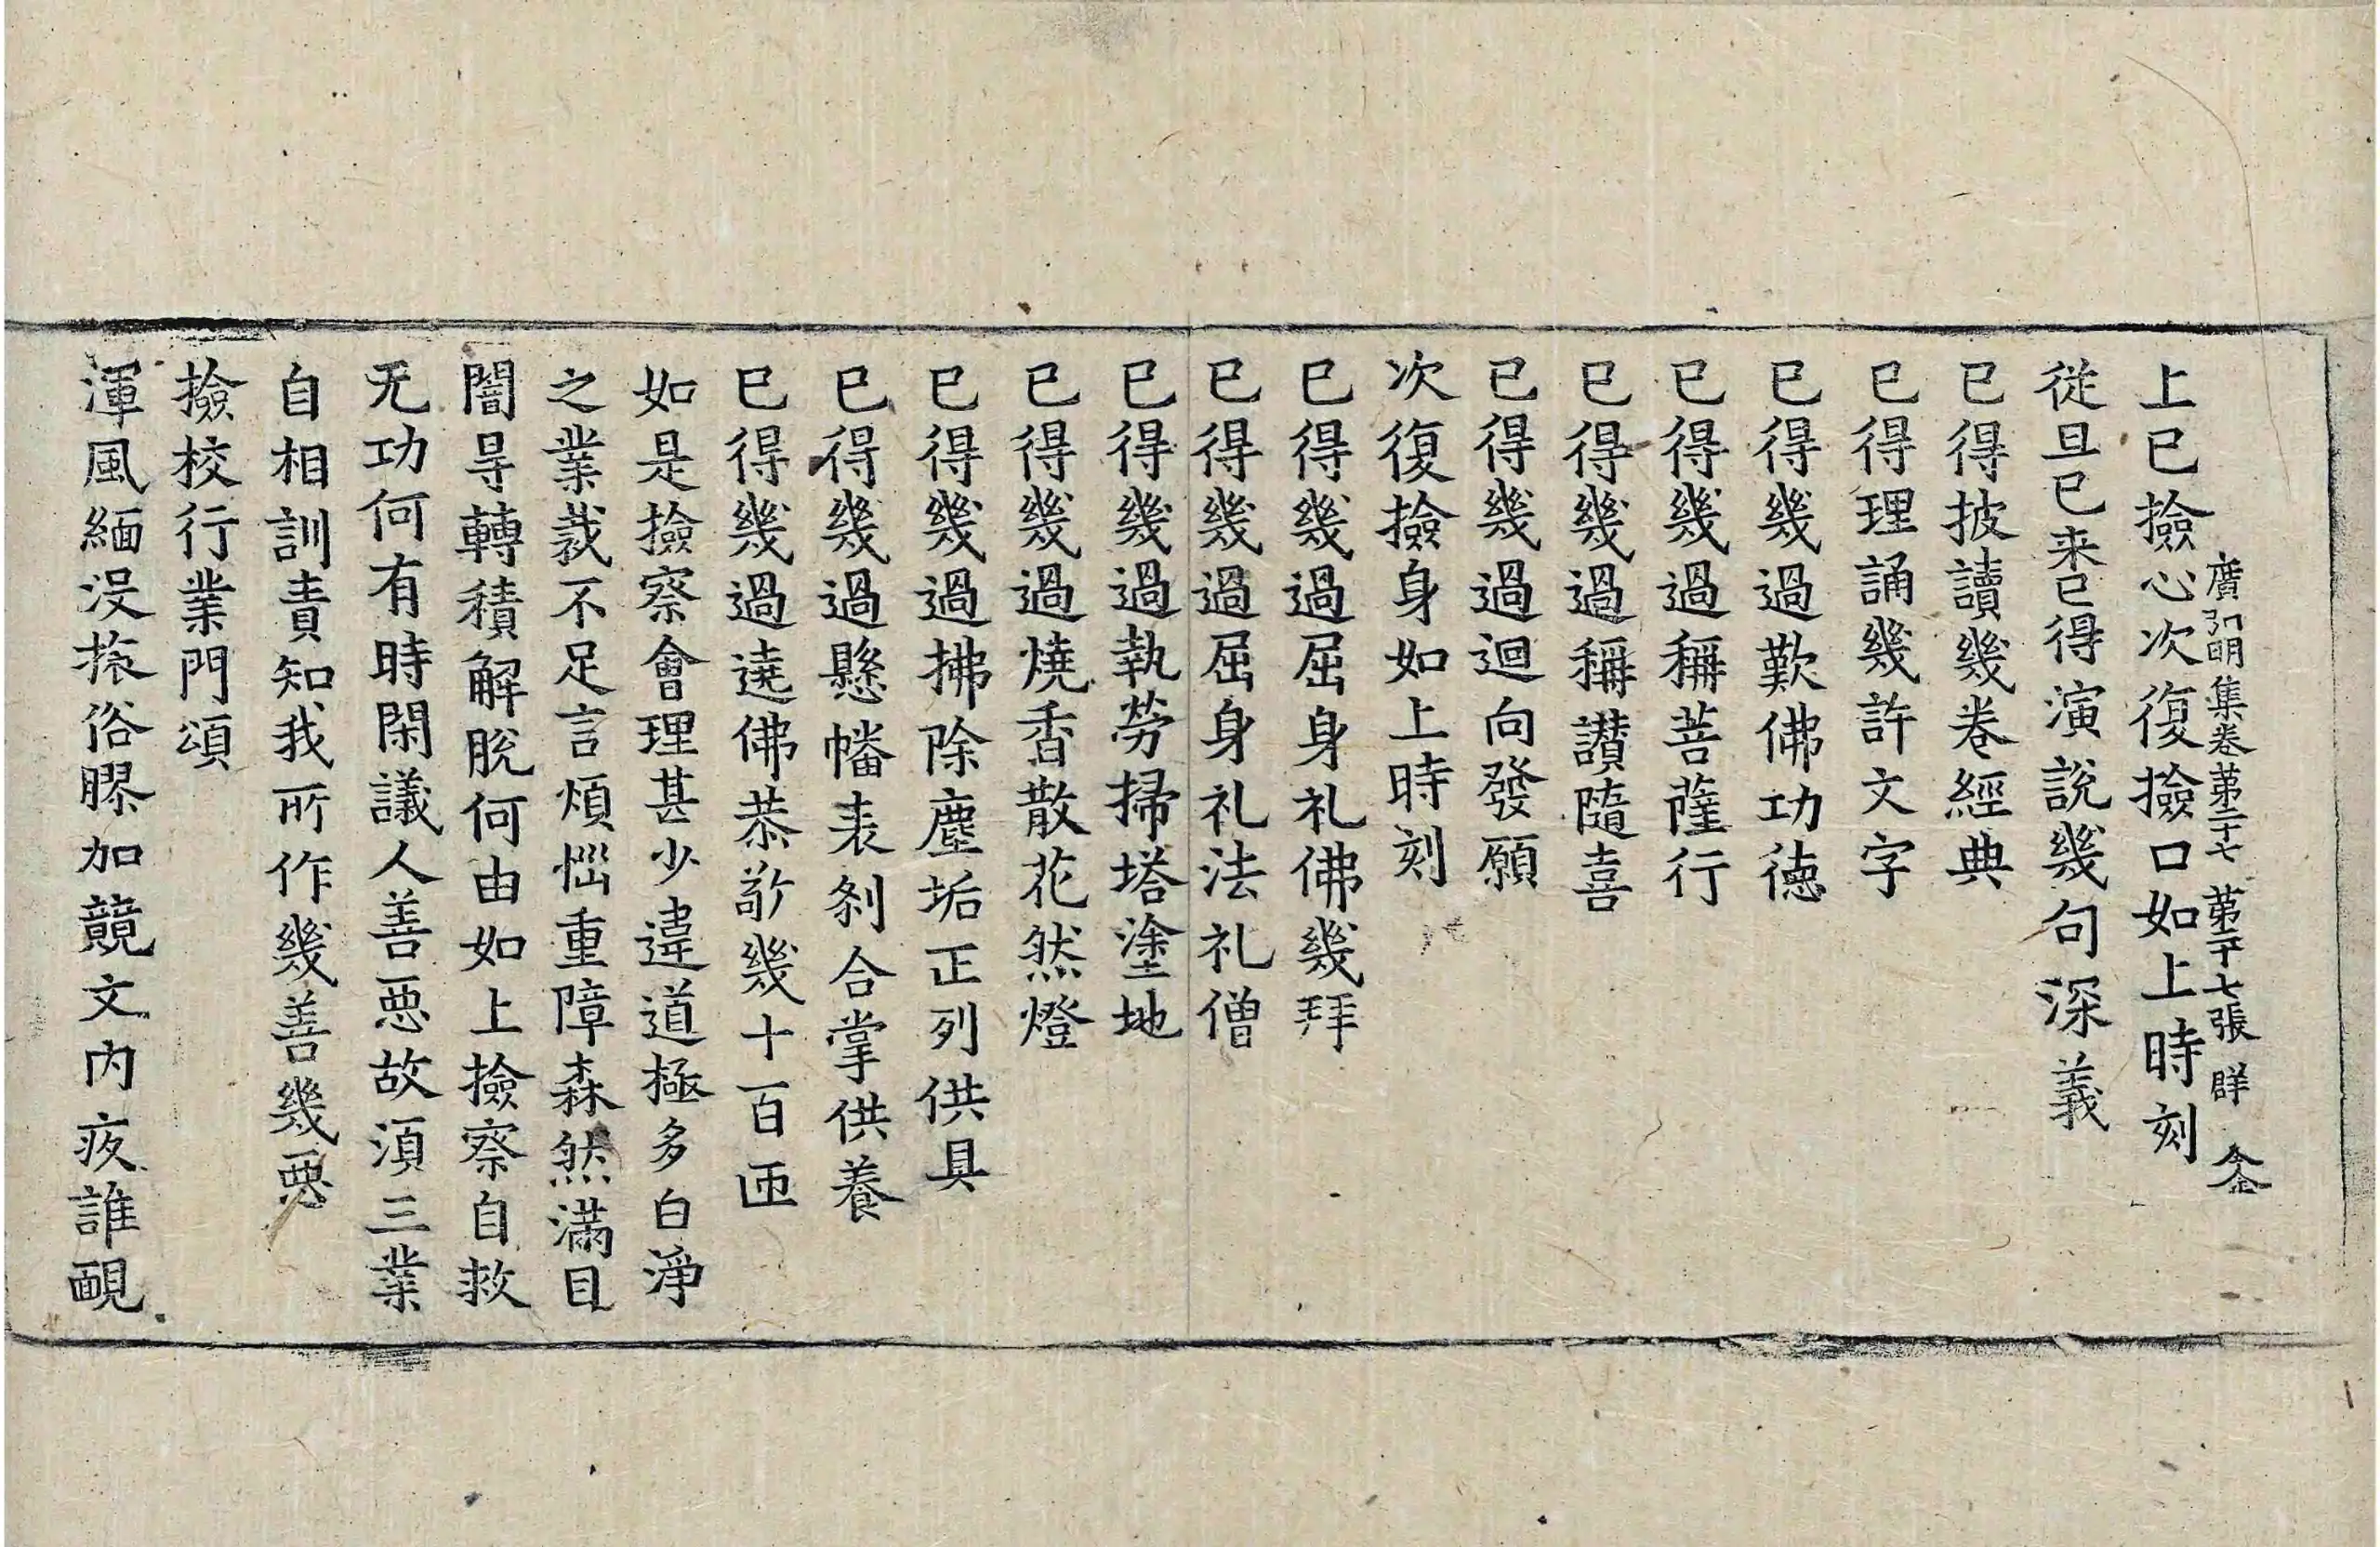 廣弘明集卷第二十七　第二十七張　群　
上已撿心次復撿口如上時刻
従旦已来已得演說幾句深義
已得披讀幾卷經典
已得理誦幾許文字
已得幾過歎佛功德
已得幾過稱菩薩行
已得幾過稱讃隨喜
已得幾過迴向發願
次復撿身如上時刻
已得幾過屈身礼佛幾拜
已得幾過屈身礼法礼僧
已得幾過執勞掃塔塗地
已得幾過燒香散花然燈
已得幾過拂除塵垢正列供具
已得幾過懸幡表刹合掌供養
已得幾過遶佛恭敬幾十百匝
如是撿察會理甚少違道極多白淨
之業裁不足言煩惱重障森然滿目
闇㝵轉積解脫何由如上撿察自救
无功何有時閑議人善惡故須三業
自相訓責知我所作幾善幾惡
撿校行業門頌
渾風緬没俗膠加競文内疚誰覼